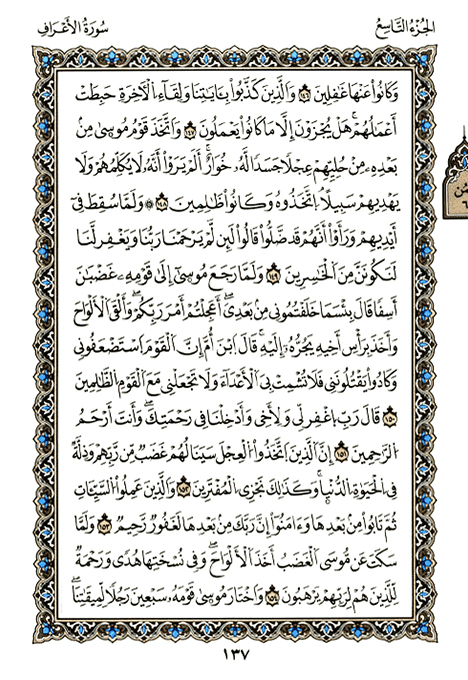 الجزء التاسع
سورة الأعراف
وَكَانُوا۟ عَنْهَا غَٰفِلِينَ ١٤٦ وَٱلَّذِينَ كَذَّبُوا۟ بِـَٔايَٰتِنَا وَلِقَآءِ ٱلْءَاخِرَةِ حَبِطَتْ
أَعْمَٰلُهُمْ ۚ هَلْ يُجْزَوْنَ إِلَّا مَا كَانُوا۟ يَعْمَلُونَ ١٤٧ وَٱتَّخَذَ قَوْمُ مُوسَىٰ مِنۢ
بَعْدِهِۦ مِنْ حُلِيِّهِمْ عِجْلًا جَسَدًا لَّهُۥ خُوَارٌ ۚ أَلَمْ يَرَوْا۟ أَنَّهُۥ لَا يُكَلِّمُهُمْ وَلَا
يَهْدِيهِمْ سَبِيلًا ۘ ٱتَّخَذُوهُ وَكَانُوا۟ ظَٰلِمِينَ ١٤٨ وَلَمَّا سُقِطَ فِىٓ
أَيْدِيهِمْ وَرَأَوْا۟ أَنَّهُمْ قَدْ ضَلُّوا۟ قَالُوا۟ لَئِن لَّمْ يَرْحَمْنَا رَبُّنَا وَيَغْفِرْ لَنَا
لَنَكُونَنَّ مِنَ ٱلْخَٰسِرِينَ ١٤٩ وَلَمَّا رَجَعَ مُوسَىٰٓ إِلَىٰ قَوْمِهِۦ غَضْبَٰنَ
أَسِفًا قَالَ بِئْسَمَا خَلَفْتُمُونِى مِنۢ بَعْدِىٓ ۖ أَعَجِلْتُمْ أَمْرَ رَبِّكُمْ ۖ وَأَلْقَى ٱلْأَلْوَاحَ
وَأَخَذَ بِرَأْسِ أَخِيهِ يَجُرُّهُۥٓ إِلَيْهِ ۚ قَالَ ٱبْنَ أُمَّ إِنَّ ٱلْقَوْمَ ٱسْتَضْعَفُونِى
وَكَادُوا۟ يَقْتُلُونَنِى فَلَا تُشْمِتْ بِىَ ٱلْأَعْدَآءَ وَلَا تَجْعَلْنِى مَعَ ٱلْقَوْمِ ٱلظَّٰلِمِينَ
١٥٠ قَالَ رَبِّ ٱغْفِرْ لِى وَلِأَخِى وَأَدْخِلْنَا فِى رَحْمَتِكَ ۖ وَأَنتَ أَرْحَمُ
ٱلرَّٰحِمِينَ ١٥١ إِنَّ ٱلَّذِينَ ٱتَّخَذُوا۟ ٱلْعِجْلَ سَيَنَالُهُمْ غَضَبٌ مِّن رَّبِّهِمْ وَذِلَّةٌ
فِى ٱلْحَيَوٰةِ ٱلدُّنْيَا ۚ وَكَذَٰلِكَ نَجْزِى ٱلْمُفْتَرِينَ ١٥٢ وَٱلَّذِينَ عَمِلُوا۟ ٱلسَّيِّـَٔاتِ
ثُمَّ تَابُوا۟ مِنۢ بَعْدِهَا وَءَامَنُوٓا۟ إِنَّ رَبَّكَ مِنۢ بَعْدِهَا لَغَفُورٌ رَّحِيمٌ ١٥٣ وَلَمَّا
سَكَتَ عَن مُّوسَى ٱلْغَضَبُ أَخَذَ ٱلْأَلْوَاحَ ۖ وَفِى نُسْخَتِهَا هُدًى وَرَحْمَةٌ
لِّلَّذِينَ هُمْ لِرَبِّهِمْ يَرْهَبُونَ ١٥٤ وَٱخْتَارَ مُوسَىٰ قَوْمَهُۥ سَبْعِينَ رَجُلًا لِّمِيقَٰتِنَا ۖ
١٣٧